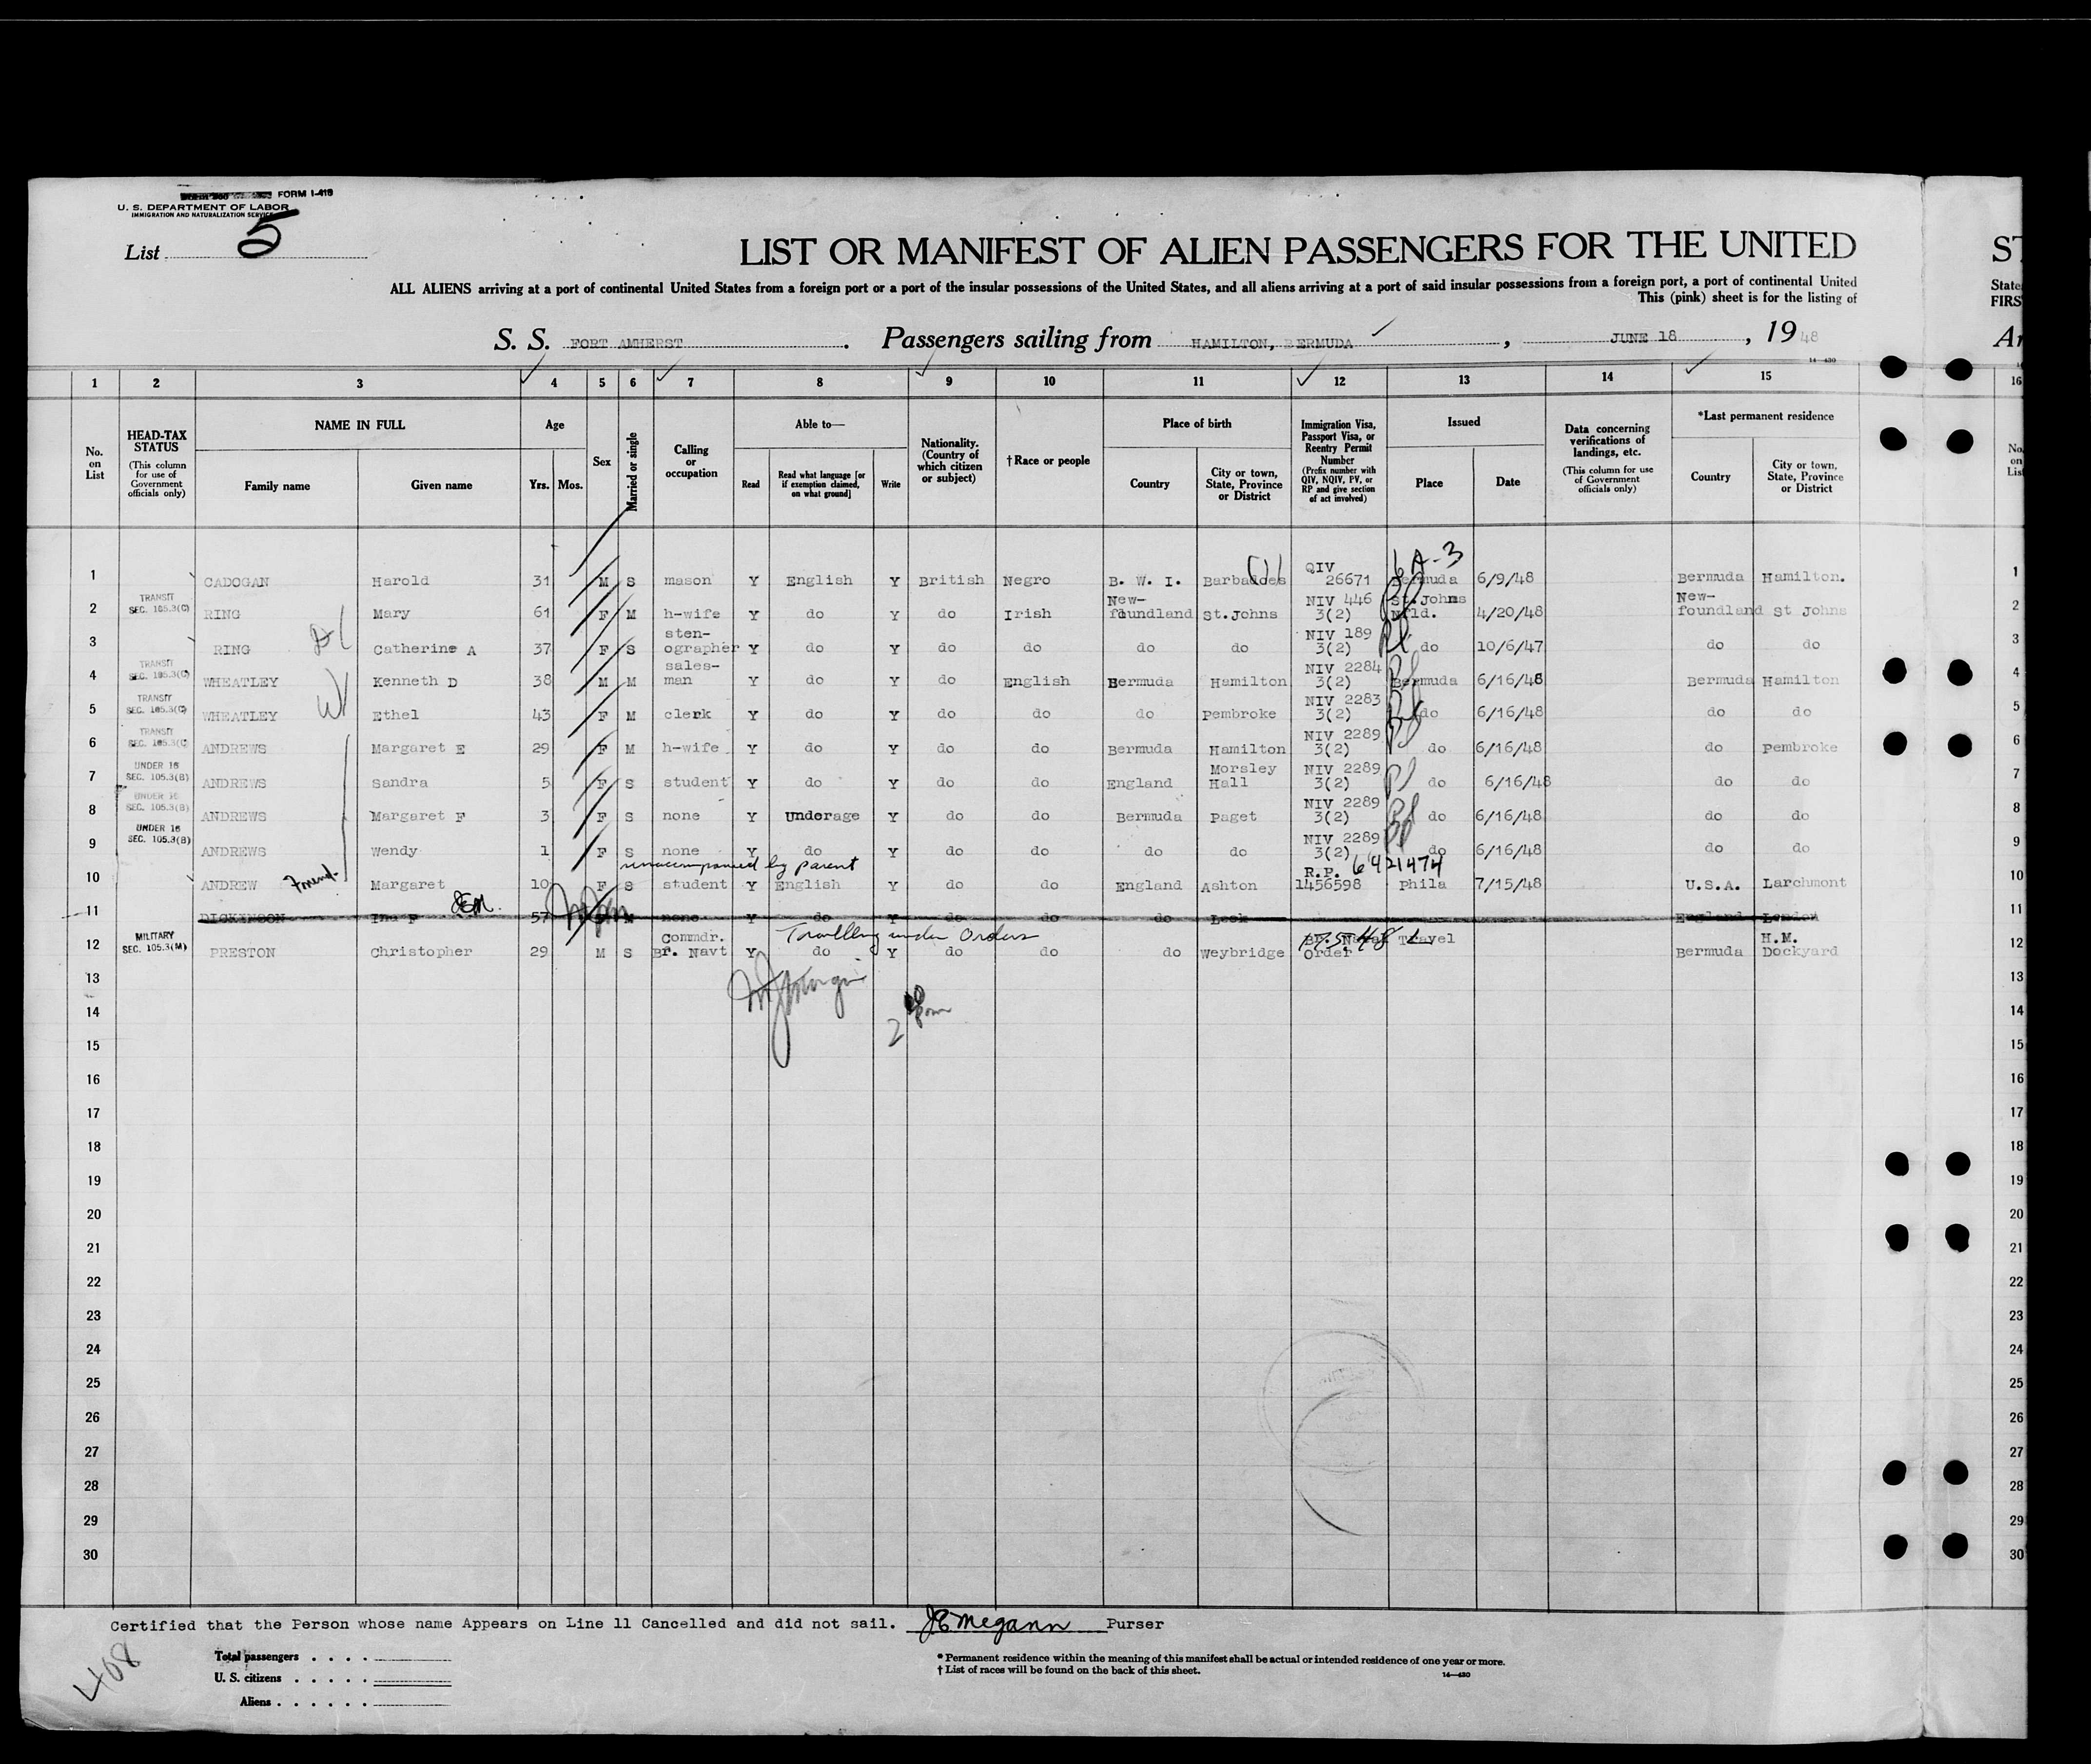 FORM I-418
U. S. DEPARTMENT OF LABOR
IMMIGRATION AND NATURALIZATION SERVICE
List 5
LIST OR MANIFEST OF ALIEN PASSENGERS FOR THE UNITED
ST
ALL ALIENS arriving at a port of continental United States from a foreign port or a port of the insular possessions of the United States, and all aliens arriving at a port of said insular possessions from a foreign port, a port of continental United
State
This (pink) sheet is for the listing of
FIRS
S. S. FORT AMHERST . Passengers sailing from HAMILTON, BERMUDA , JUNE 18 , 1948
Ar
14—430
1 2 3 4 5 6 7 8 9 10 11 12 13 14 15 16
No. on List
HEAD-TAX STATUS
(This column for use of Government officials only)
NAME IN FULL
Family name
Given name
Age
Yrs. Mos.
Sex
Married or single
Calling or occupation
Able to—
Read
Read what language [or if exemption claimed, on what ground]
Write
Nationality. (Country of which citizen or subject)
†Race or people
Place of birth
Country
City or town, State, Province or District
Immigration Visa, Passport Visa, or Reentry Permit Number
(Prefix number with QIV, NQIV, PV, or RP and give section of act involved)
Issued
Place
Date
Data concerning verifications of landings, etc.
(This column for use of Government officials only)
*Last permanent residence
Country
City or town, State, Province or District
No. on List
6A-3
1 CADOGAN Harold 31 M S mason Y English Y British Negro B. W. I. Barbadoes QIV 26671 Bermuda 6/9/48 Bermuda Hamilton. 1
TRANSIT SEC. 105.3(C)
2 RING Mary 61 F M h-wife Y do Y do Irish New-foundland St.Johns NIV 446 3(2) St.Johns Nfld. 4/20/48 New-foundland St Johns 2
3 RING Catherine A 37 F S sten-ographer Y do Y do do do do NIV 189 3(2) do 10/6/47 do do 3
TRANSIT SEC. 105.3(C)
4 WHEATLEY Kenneth D 38 M M sales-man Y do Y do English Bermuda Hamilton NIV 2284 3(2) Bermuda 6/16/48 Bermuda Hamilton 4
TRANSIT SEC. 105.3(C)
5 WHEATLEY Ethel 43 F M clerk Y do Y do do do Pembroke NIV 2283 3(2) do 6/16/48 do do 5
TRANSIT SEC. 105.3(C)
6 ANDREWS Margaret E 29 F M h-wife Y do Y do do Bermuda Hamilton NIV 2289 3(2) do 6/16/48 do Pembroke 6
UNDER 16 SEC. 105.3(B)
7 ANDREWS Sandra 5 F S student Y do Y do do England Morsley Hall NIV 2289 3(2) do 6/16/48 do do 7
UNDER 16 SEC. 105.3(B)
8 ANDREWS Margaret F 3 F S none Y Underage Y do do Bermuda Paget NIV 2289 3(2) do 6/16/48 do do 8
UNDER 16 SEC. 105.3(B)
9 ANDREWS Wendy 1 F S none Y do Y do do do do NIV 2289 3(2) do 6/16/48 do do 9
unaccompanied by parent
6421474
10 ANDREW Friend Margaret 10 F S student Y English Y do do England Ashton R.P. 1456598 Phila 7/15/48 U.S.A. Larchmont 10
JEM
11 DICKENSON Ina F 57 F M none Y do Y do do do Leek England London 11
Travelling under Orders
MILITARY SEC. 105.3(M)
12 PRESTON Christopher 29 M S Commdr. Br. Navt Y do Y do do do Weybridge Br. Naval Travel Order Bermuda H.M. Dockyard 12
13 13
14 14
15 15
16 16
17 17
18 18
19 19
20 20
21 21
22 22
23 23
24 24
25 25
26 26
27 27
28 28
29 29
30 30
Certified that the Person whose name Appears on Line 11 Cancelled and did not sail. JEMegann Purser
408
Total passengers . . . .
U. S. citizens . . . . .
Aliens . . . . . .
* Permanent residence within the meaning of this manifest shall be actual or intended residence of one year or more.
† List of races will be found on the back of this sheet.
14—430